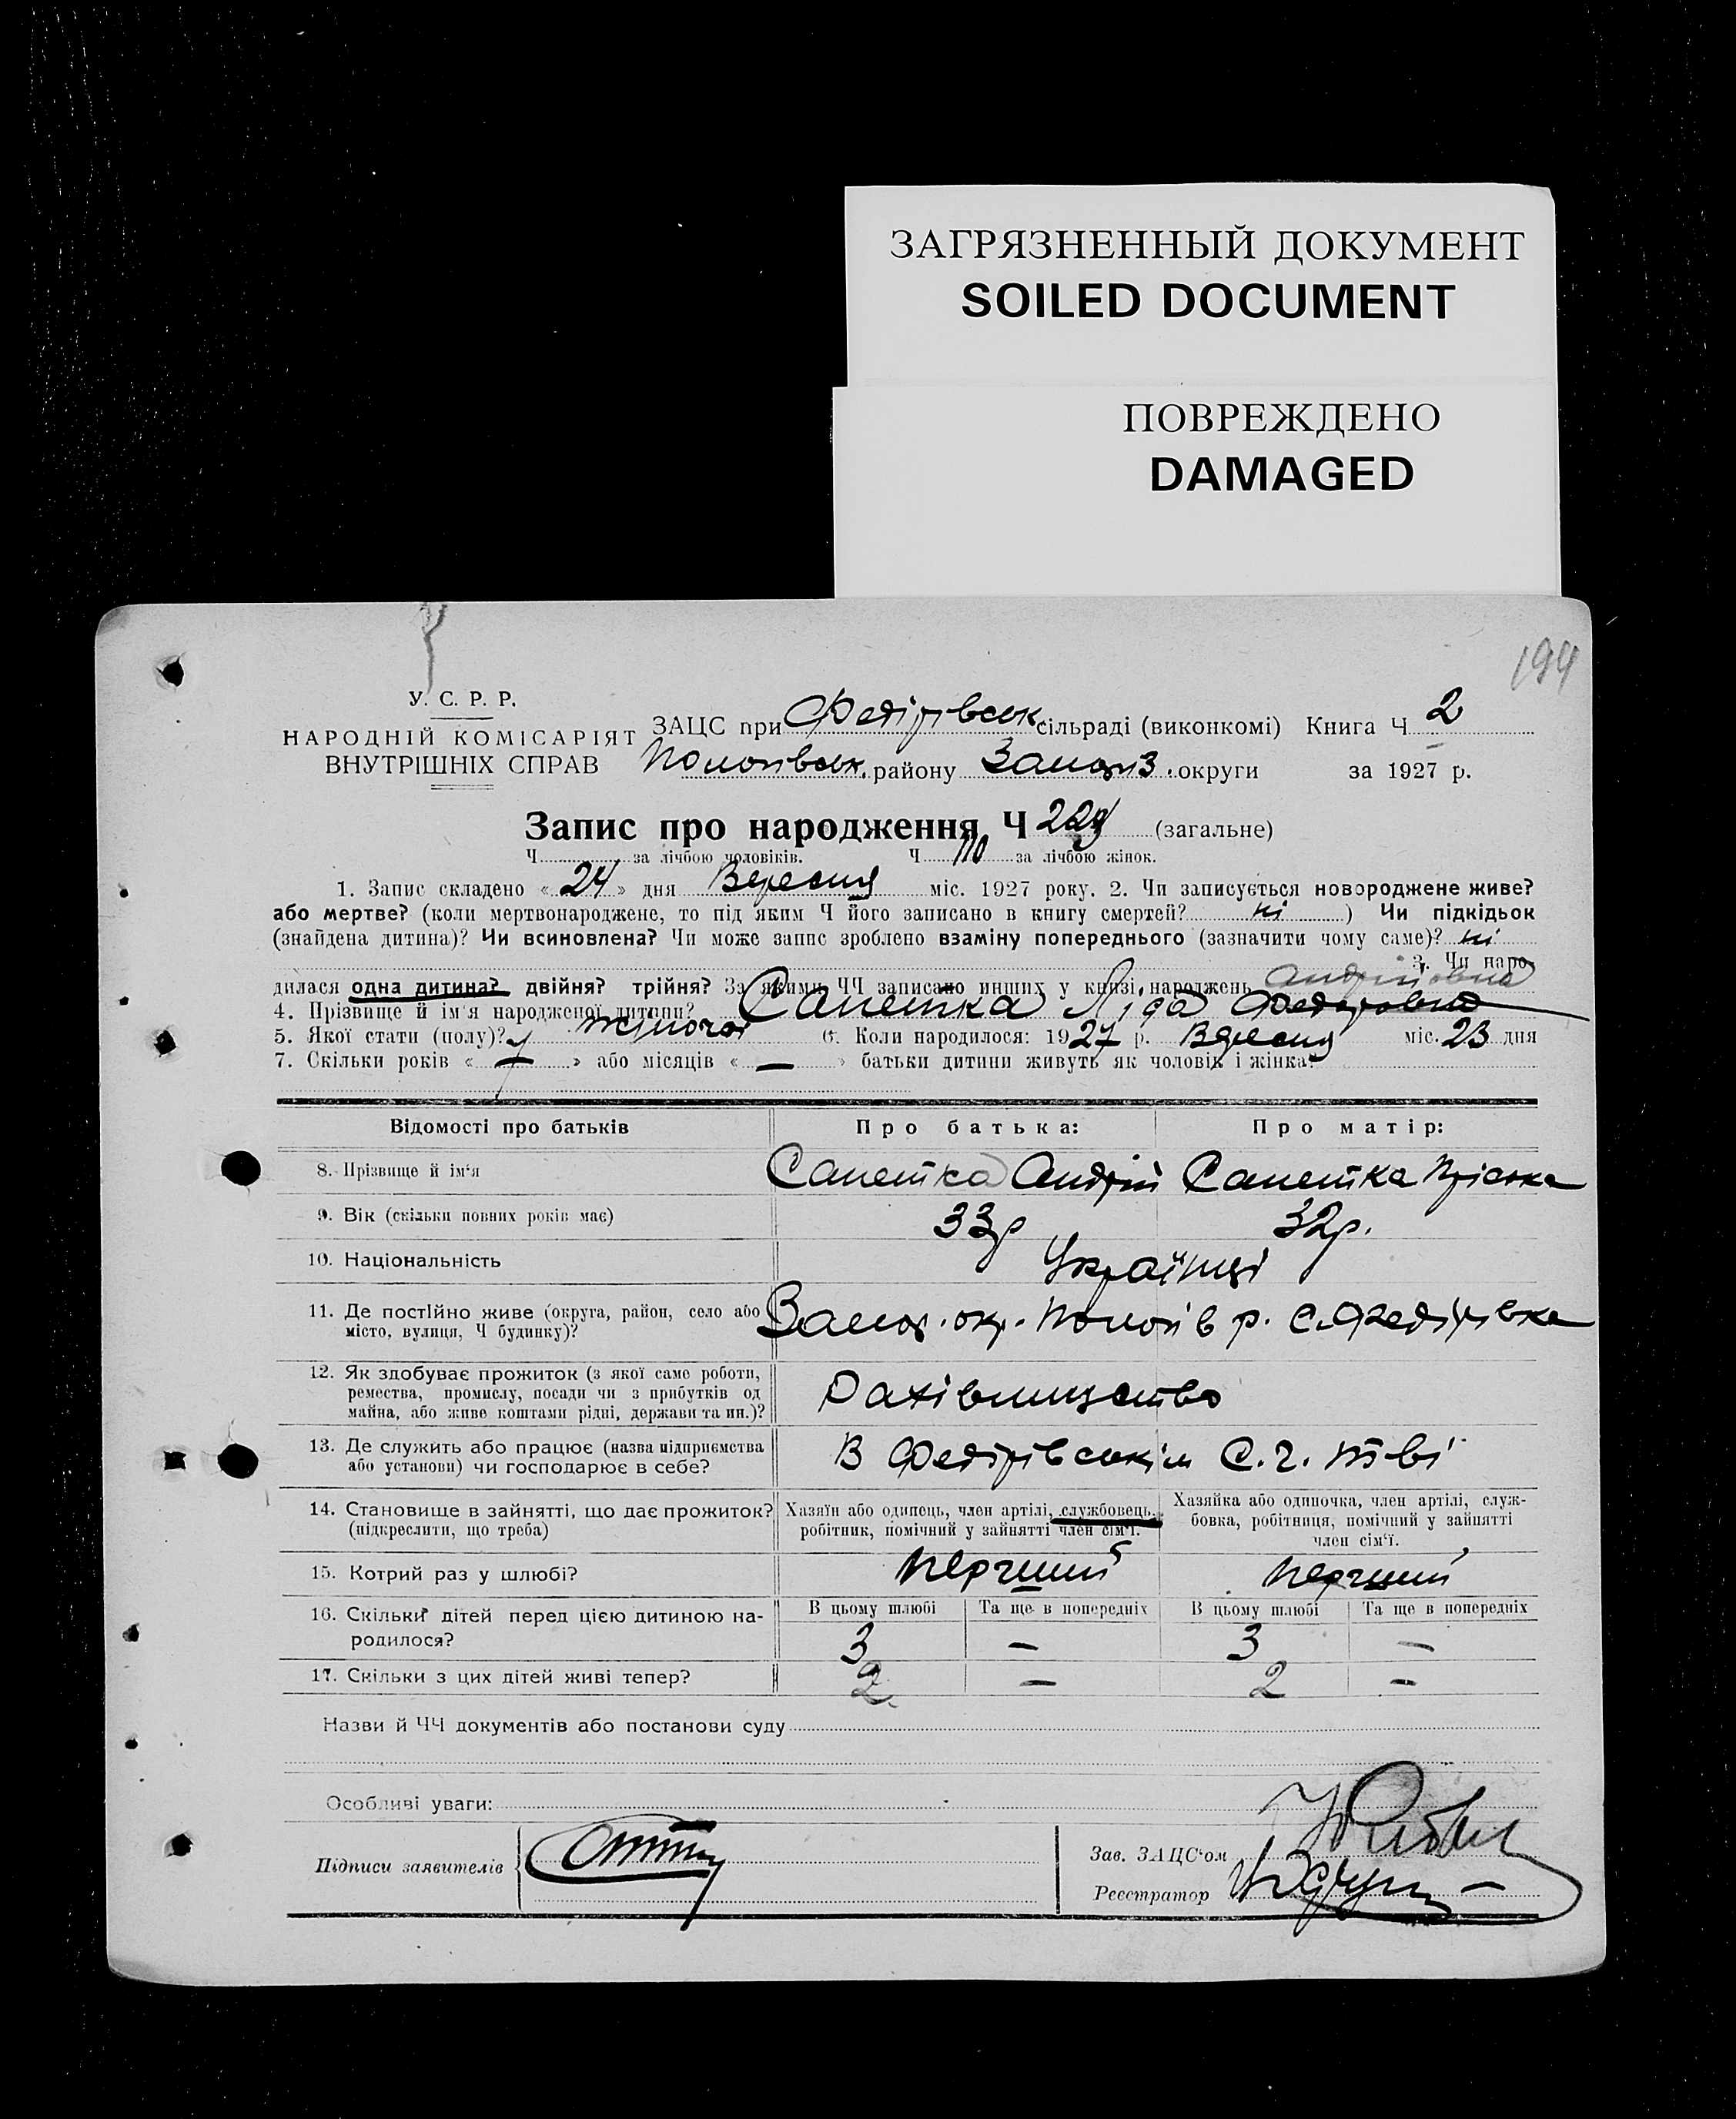 ЗАГРЯЗНЕННЫЙ ДОКУМЕНТ
SOILED DOCUMENT
ПОВРЕЖДЕНО
DAMAGED
У. С. Р. Р.
НАРОДНІЙ КОМІСАРІЯТ
ВНУТРІШНІХ СПРАВ
ЗАЦС при Федірівськ. сільраді (виконкомі) Книга Ч 2
Пологівськ. району Запоріз. округи за 1927 р.
Запис про народження Ч (загальне)
Ч за лічбою чоловіків. Ч 110 за лічбою жінок.
1. Запис складено « 24 » дня Вересня міс. 1927 року. 2. Чи записується новороджене живе?
або мертве? (коли мертвонароджене, то під яким Ч його записано в книгу смертей? ні ) Чи підкідьок
(знайдена дитина)? Чи всиновлена? Чи може запис зроблено взаміну попереднього (зазначити чому саме)? ні
3. Чи наро-
дилася одна дитина? двійня? трійня? За якими ЧЧ записано инших у книзі народжень Андріївна
4. Прізвище й ім'я народженої дитини? Сапетка Ліда Федоровна
5. Якої стати (полу)? жіночої 6. Коли народилося: 1927 р. Вересня міс. 23 дня
7. Скільки років « — » або місяців « — » батьки дитини живуть як чоловік і жінка?
Відомості про батьків Про батька: Про матір:
8. Прізвище й ім'я Сапетка Андрій Сапетка Пріська
9. Вік (скільки повних років має) 33р 32р.
10. Національність Українці
11. Де постійно живе (округа, район, село або
місто, вулиця, Ч будинку)? Запор. окр. Пологів р. с. Федірівка
12. Як здобуває прожиток (з якої саме роботи,
ремества, промислу, посади чи з прибутків од
майна, або живе коштами рідні, держави та ин.)? Рахівництво
13. Де служить або працює (назва підприємства
або установи) чи господарює в себе? В Федірівськім С.г. т-ві
14. Становище в зайнятті, що дає прожиток?
(підкреслити, що треба)
Хазяїн або одинець, член артілі, службовець,
робітник, помічний у зайнятті член сім'ї.
Хазяйка або одиночка, член артілі, служ-
бовка, робітниця, помічний у зайнятті
член сім'ї.
15. Котрий раз у шлюбі? перший перший
16. Скільки дітей перед цією дитиною на-
родилося?
В цьому шлюбі Та ще в попередніх В цьому шлюбі Та ще в попередніх
3 — 3 —
17. Скільки з цих дітей живі тепер? 2 — 2 —
Назви й ЧЧ документів або постанови суду
Особливі уваги:
Підписи заявителів
Зав. ЗАЦС'ом
Реєстратор